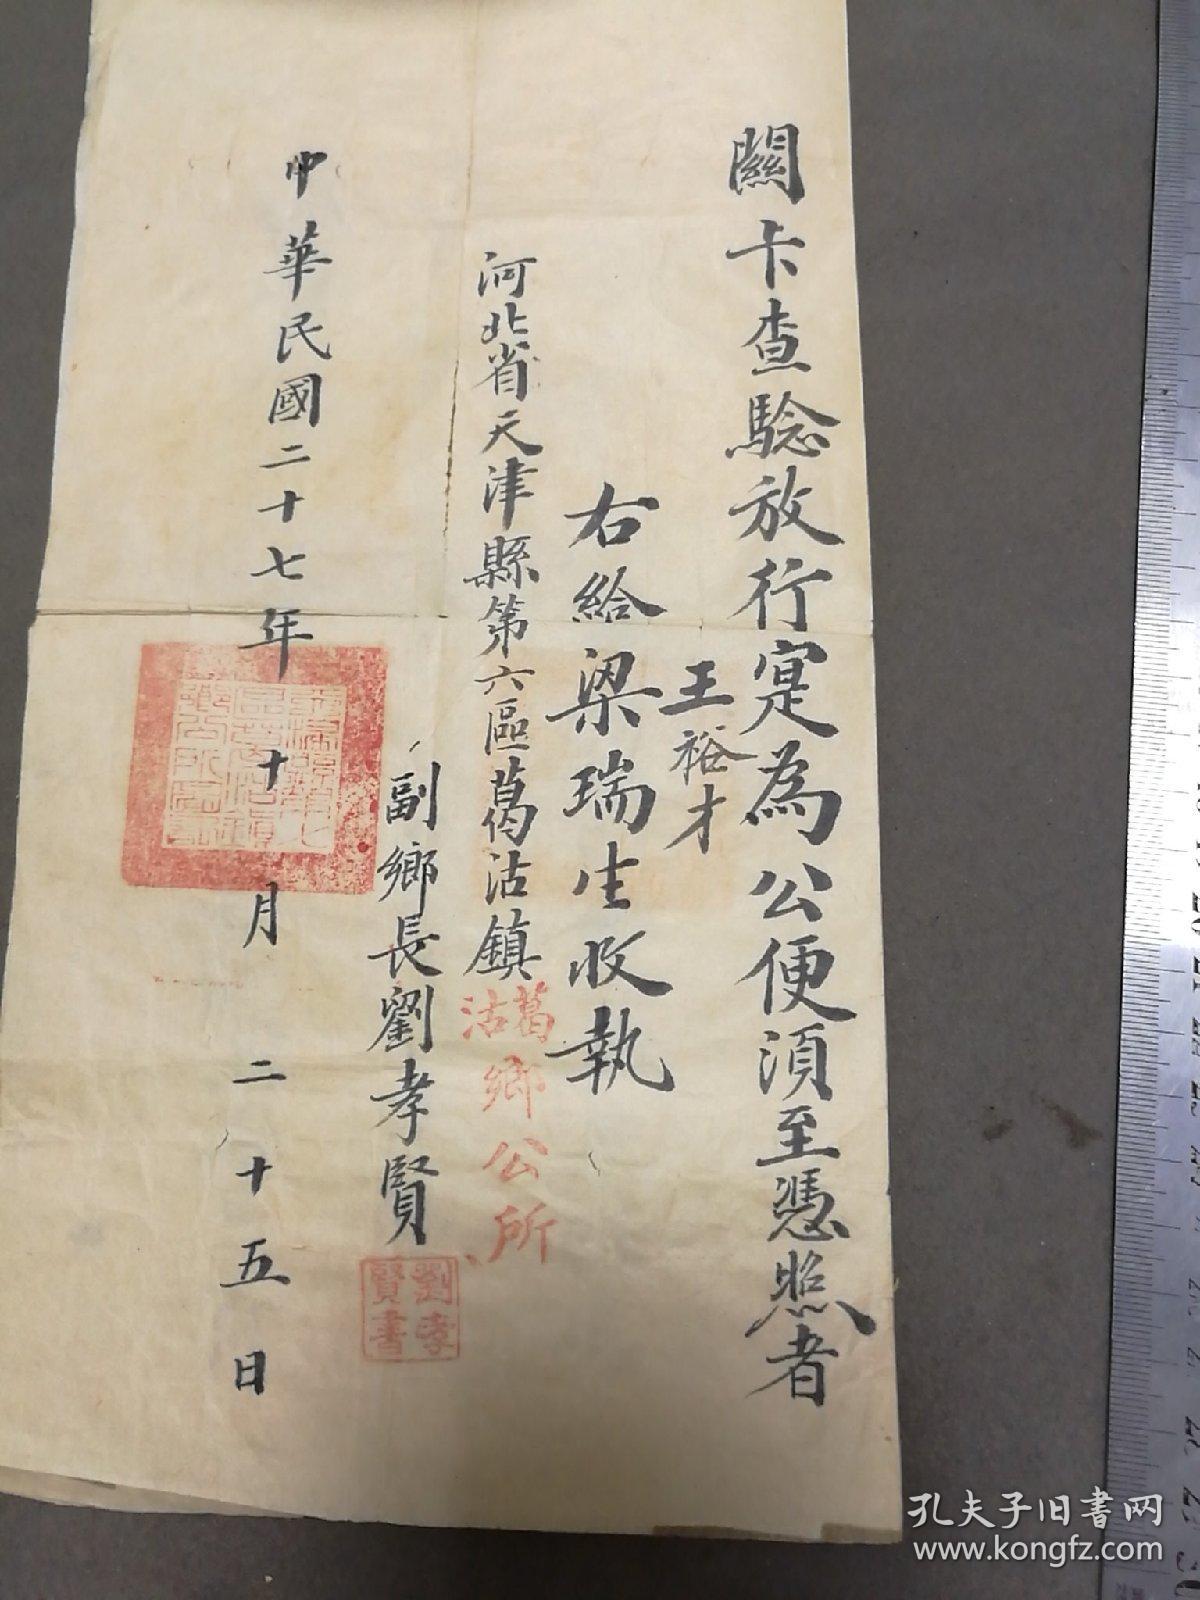 關卡查驗放行寔為公便須至憑照者
王裕才
右給梁瑞生收執
河北省天津縣第六區葛沽鎮
葛沽鄉公所
副鄉長劉孝賢
劉孝賢書
中華民國二十七年十月二十五日
孔夫子旧书网
www.kongfz.com